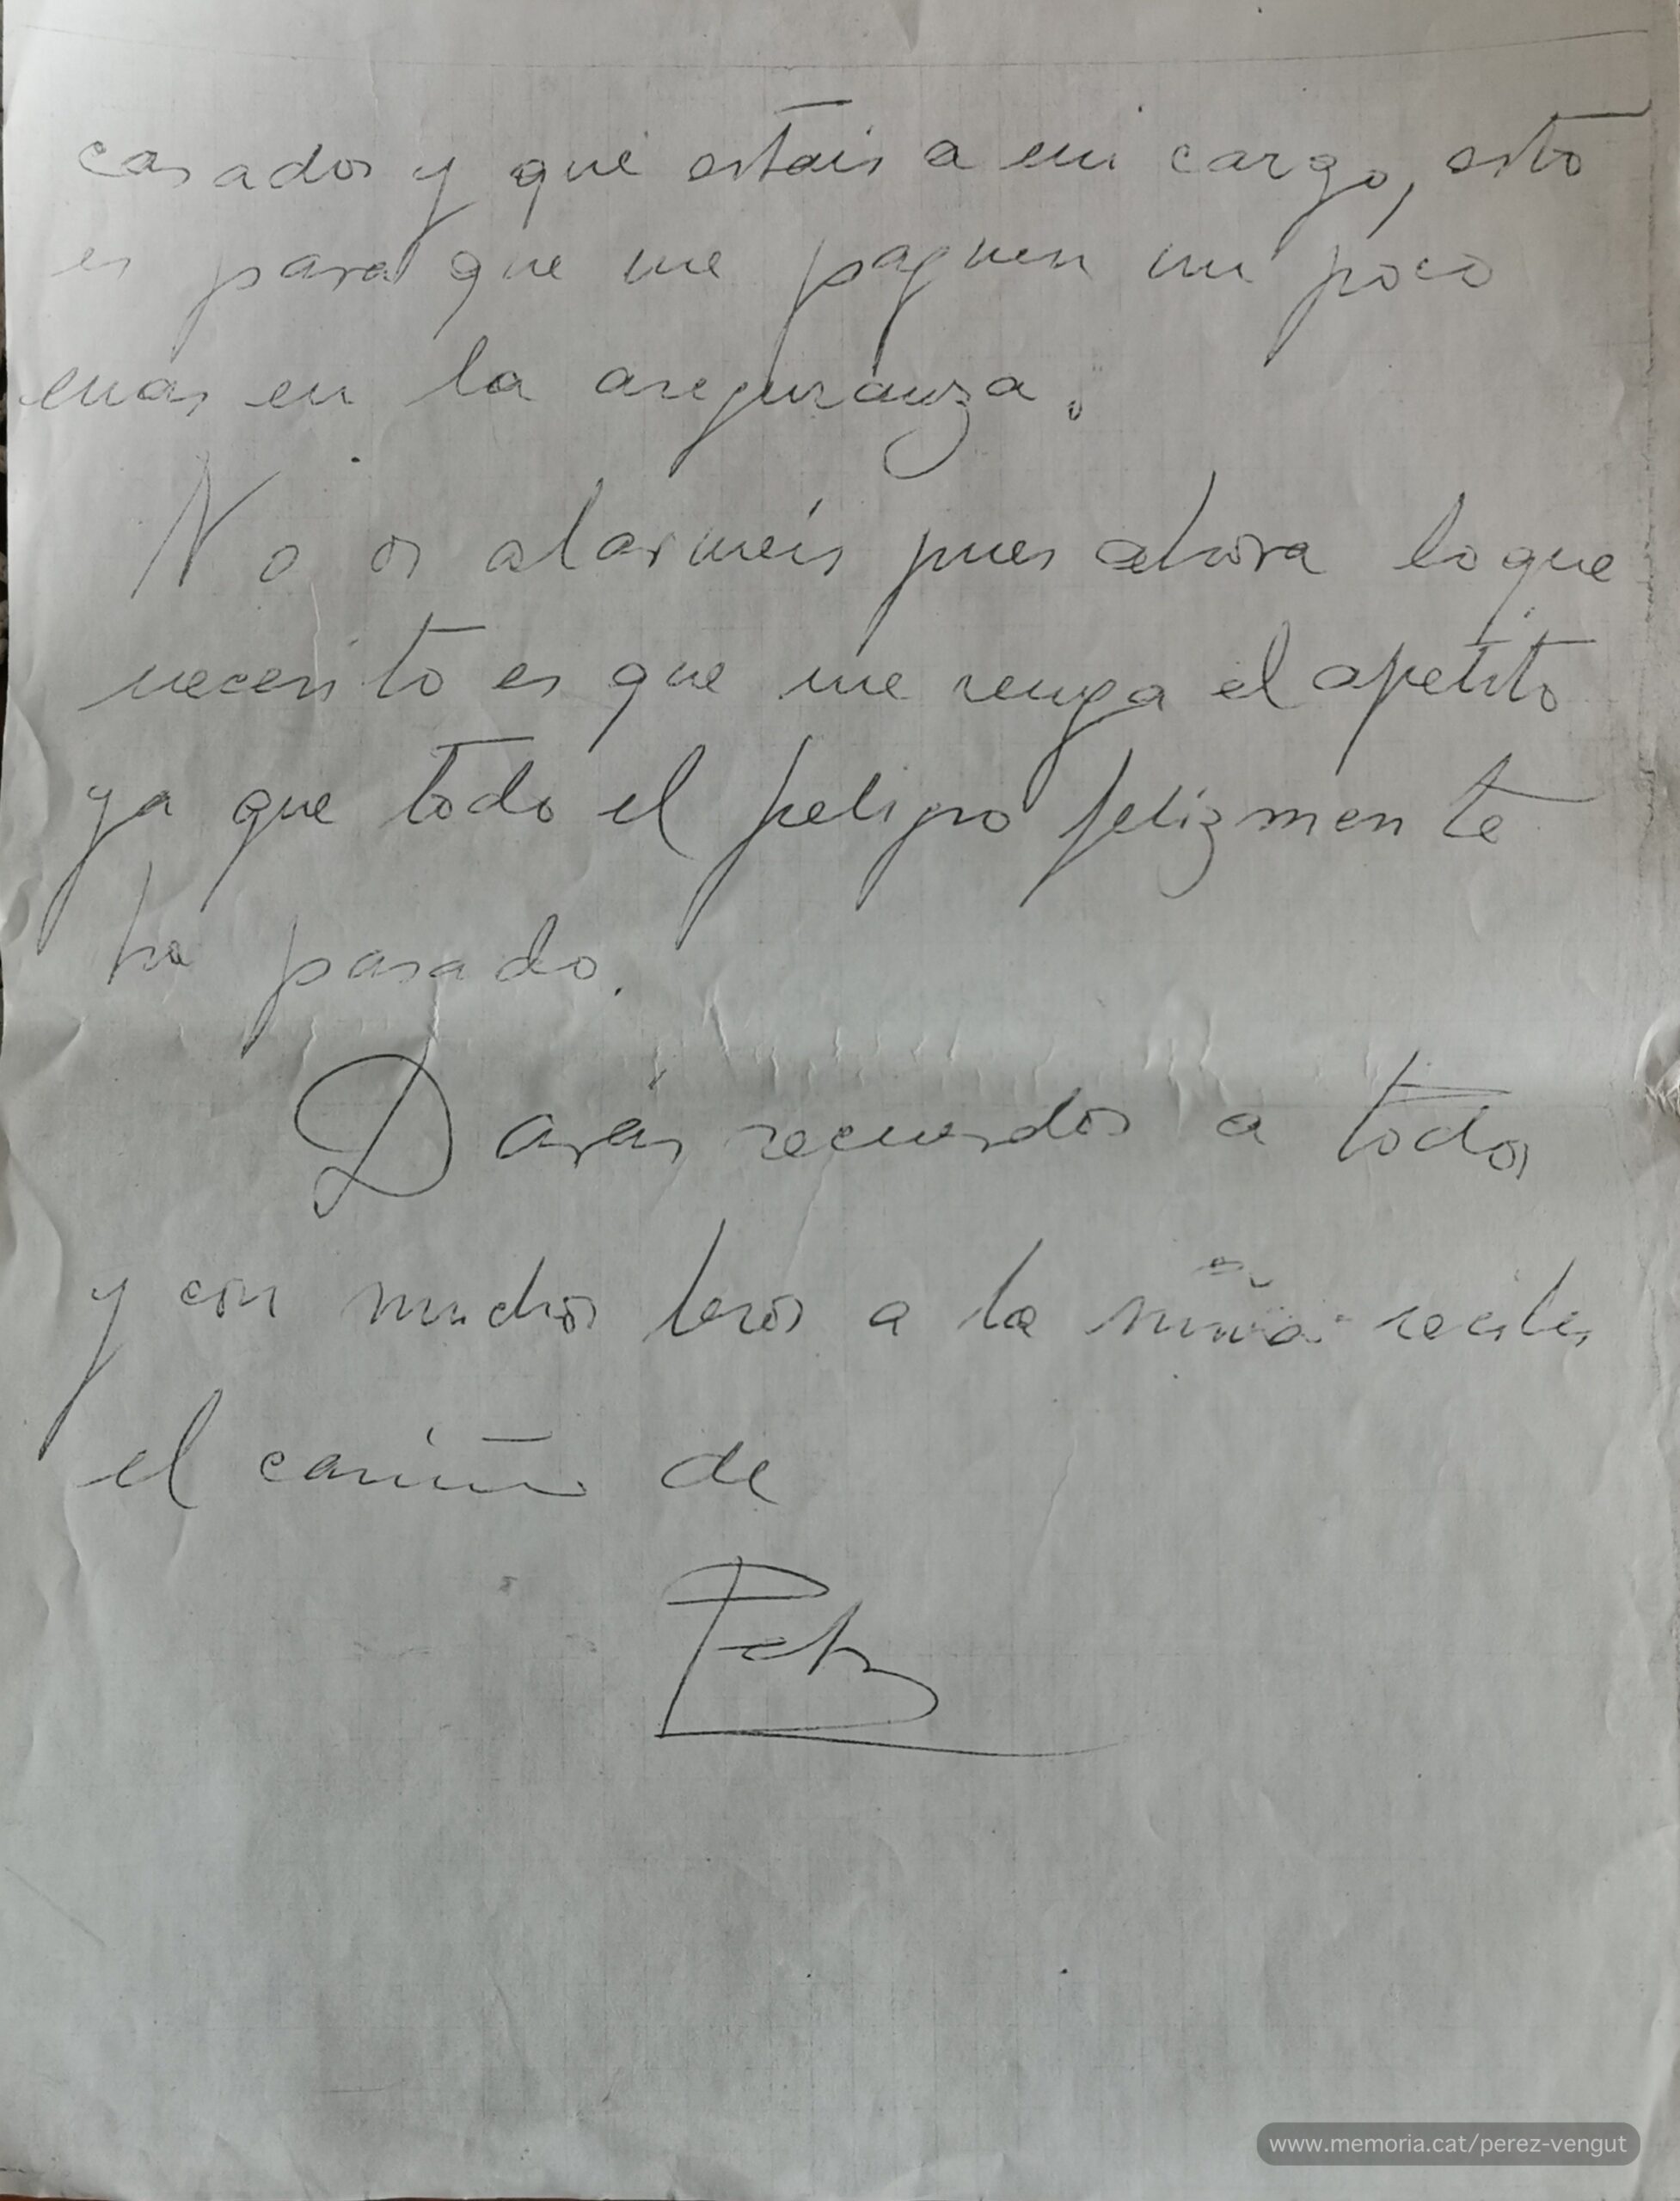 casados y que estais a mi cargo, esto
es para que me paguen un poco
mas en la aseguranza.
No os alarméis pues ahora lo que
necesito es que me venga el apetito
ya que todo el peligro felizmente
ha pasado.
Darás recuerdos a todos
y con muchos besos a la niña recibes
el cariño de
www.memoria.cat/perez-vengut